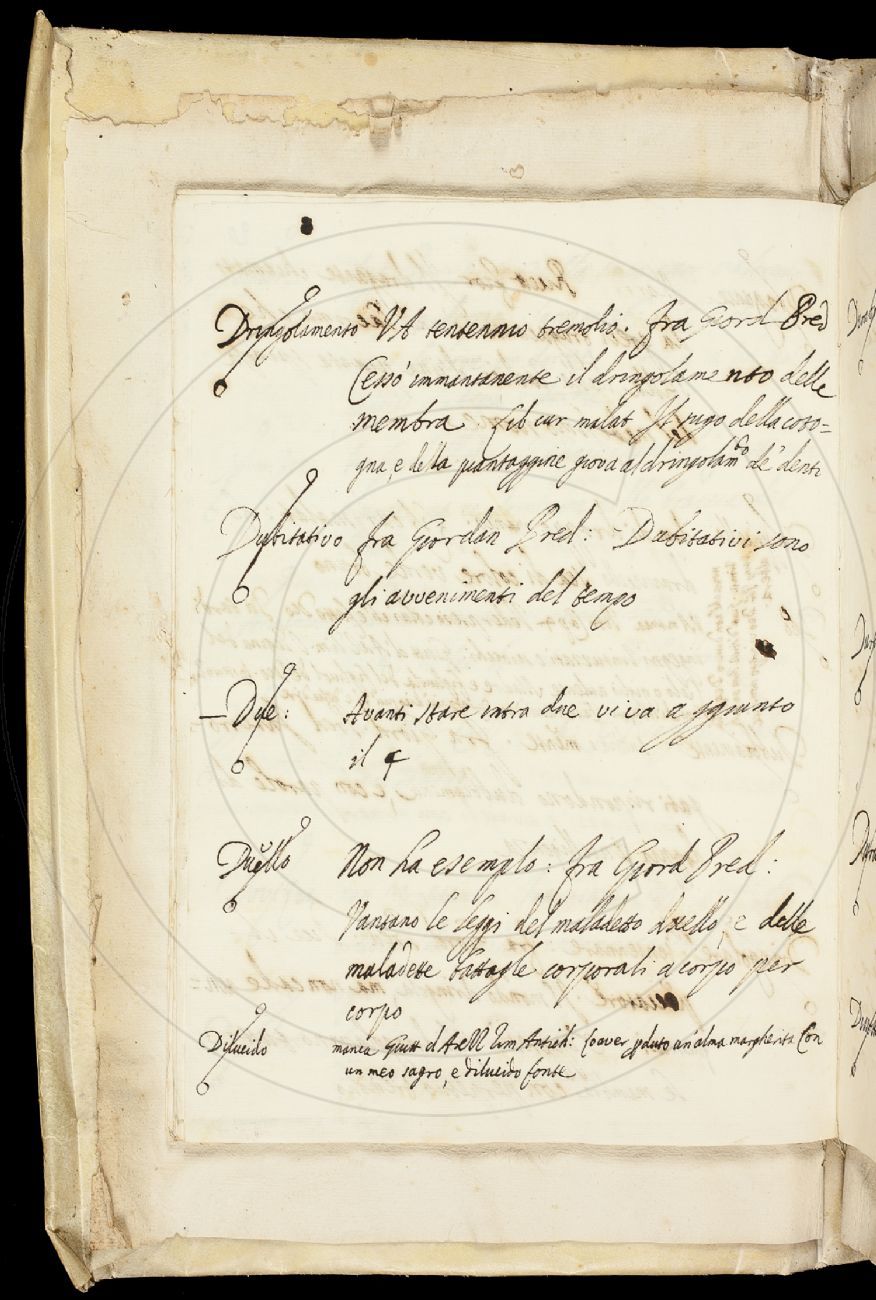 Dringolamento VA tentennio tremolio. fra Giord Pred
Cessò immantanente il dringolamento delle
membra. Lib cur malat Il sugo della coto=
gna, e della piantaggine giova al dringolam.to de' denti
Dubitativo fra Giordan Pred: Dubitativi sono
gli avvenimenti del tempo
– Due: Avanti stare intra due viva aggiunto
il
Duello Non ha esempio: fra Giord Pred:
Vantano le leggi del maladetto duello, e delle
maladette battagle corporali a corpo per
corpo
Dilucido manca Guitt d Arezz Rim Antich: Lo aver pduto un alma margherita Con
un meo sagro, e dilucido fonte